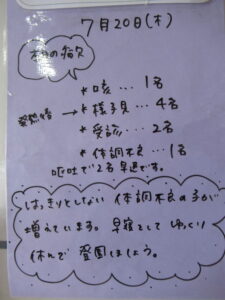 7月20日(木)
本日の病欠
*咳…1名
発熱後→*様子見…4名
*受診…2名
*体調不良…1名
嘔吐で2名早退です。
はっきりとしない体調不良の子が
増えています。早寝をしてゆっくり
休んで登園しましょう。